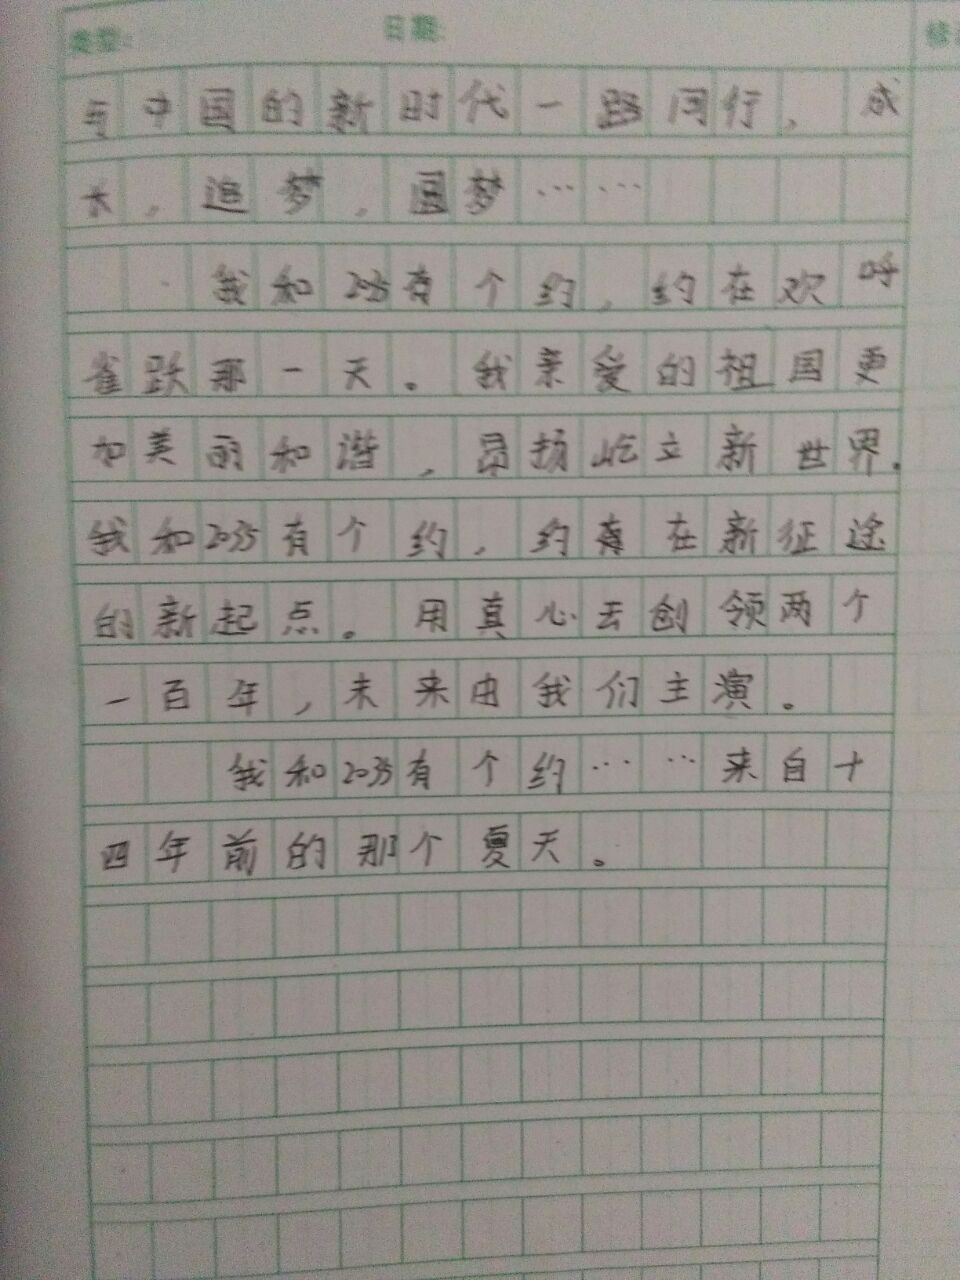 类型: 日期:
与中国的新时代一路同行，成
长，追梦，圆梦……
我和2035有个约，约在欢呼
雀跃那一天。我亲爱的祖国更
加美丽和谐，昂扬屹立新世界。
我和2035有个约，约在新征途
的新起点。用真心去创领两个
一百年，未来由我们主演。
我和2035有个约……来自十
四年前的那个夏天。